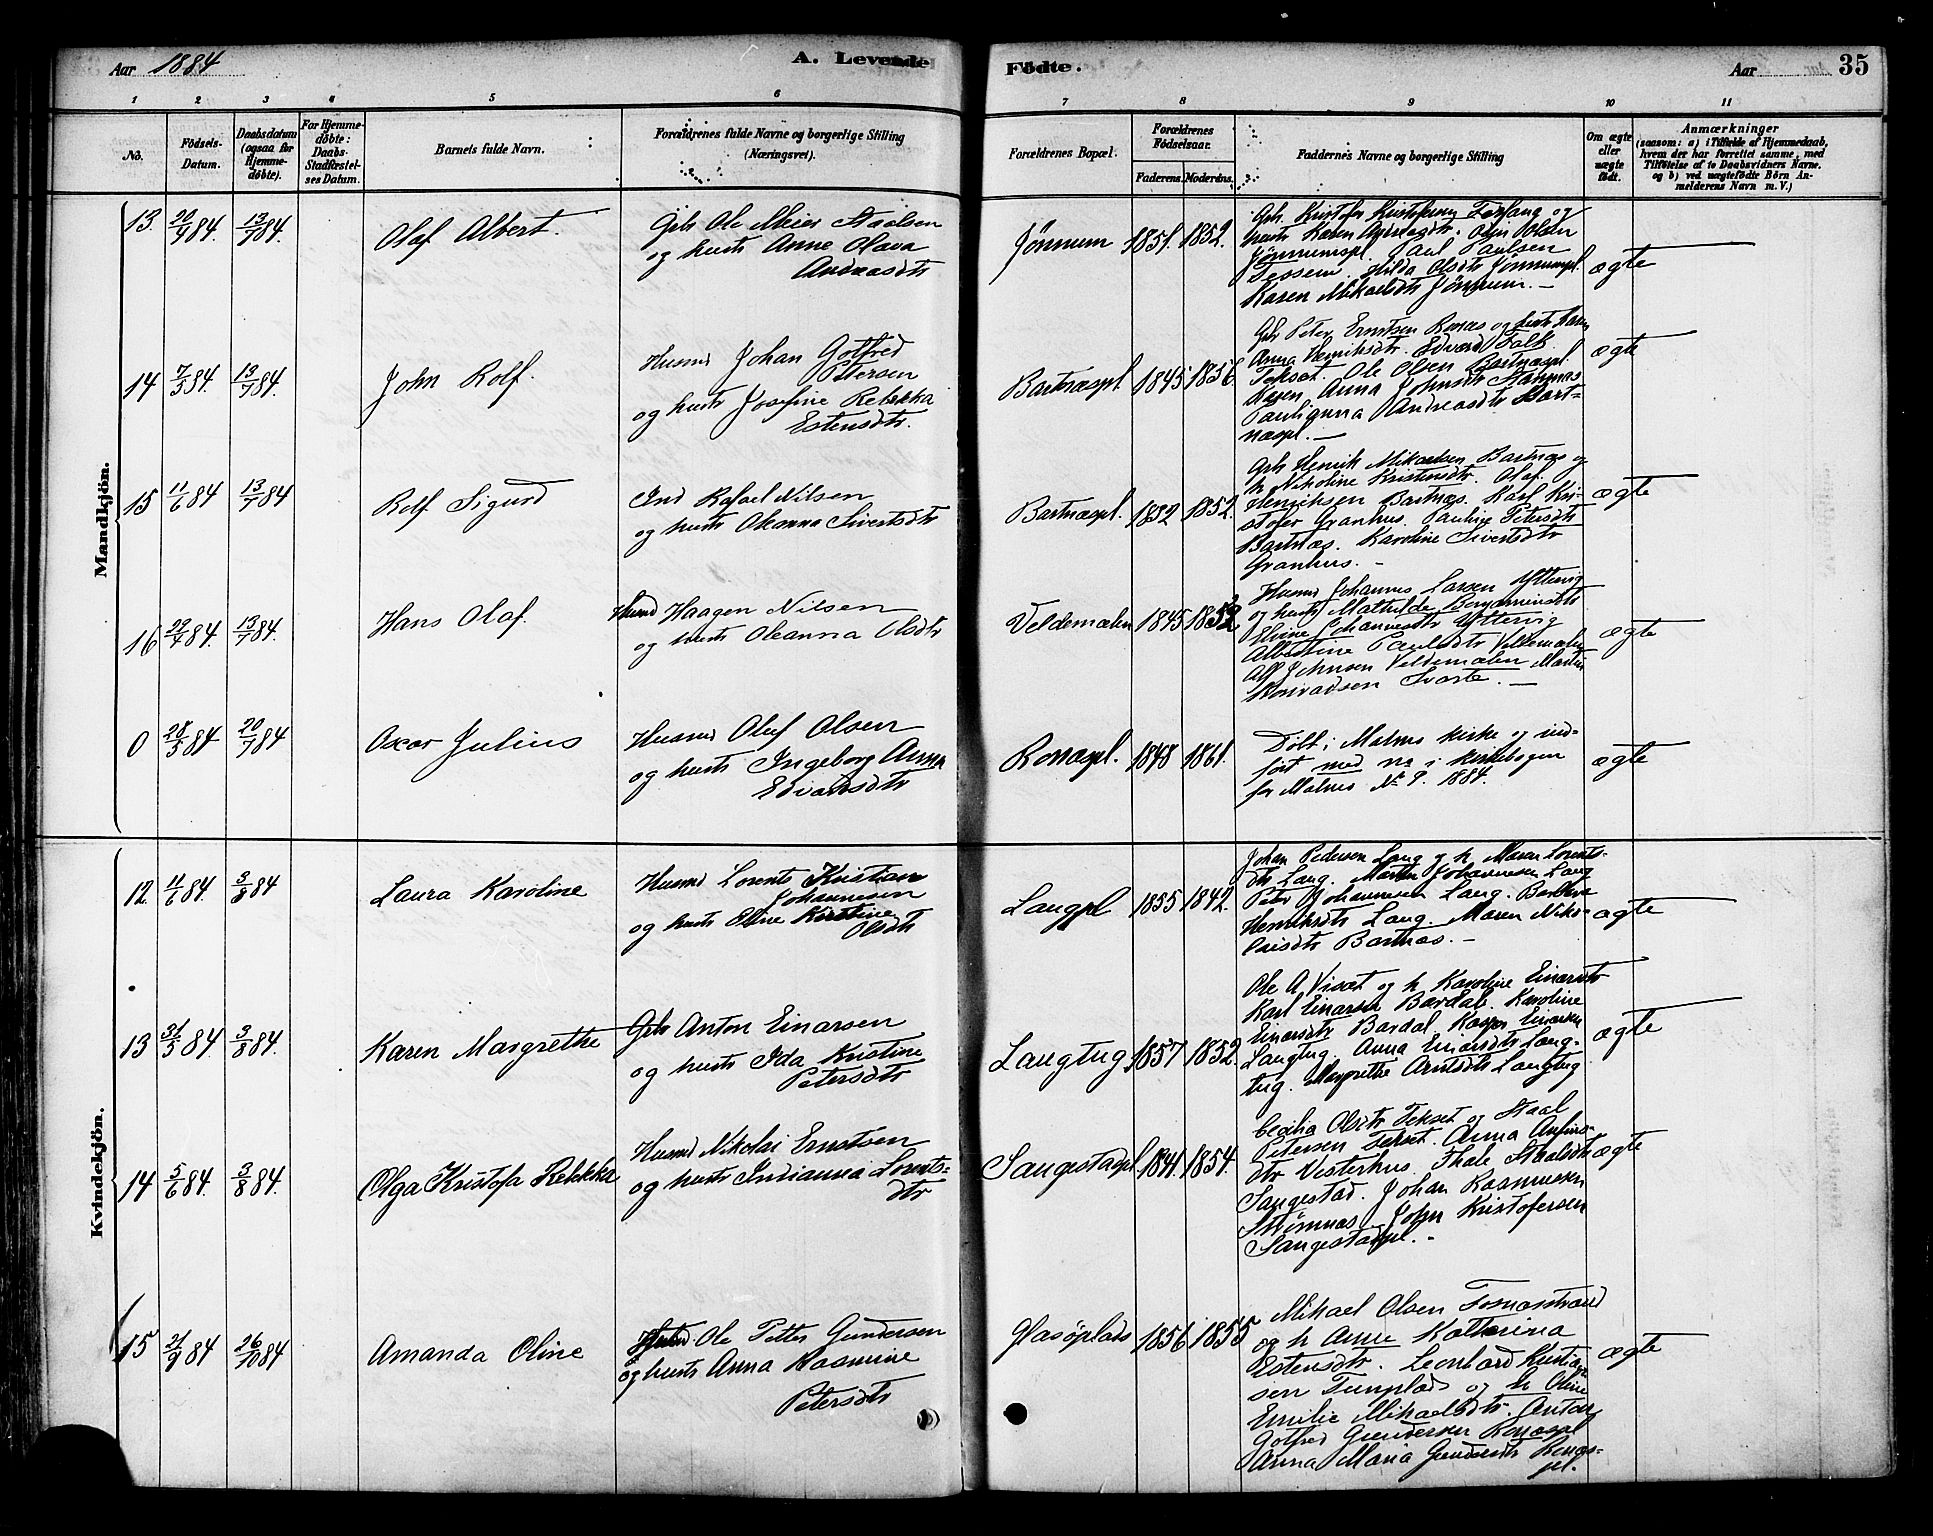 Aar 1884
A. Levende Födte.
Aar
35
1 2 3 4 5 6 7 8 9 10 11
No.
Födsels-
Datum.
Daabsdatum
(ogsaa for
Hjemme-
döbte).
For Hjemme-
döbte:
Daabs-
Stadfæstel-
ses Datum.
Barnets fulde Navn.
Forældrenes fulde Navne og borgerlige Stilling
(Næringsvei).
Forældrenes Bopæl.
Forældrenes
Födselsaar.
Faderens. Moderens.
Faddernes Navne og borgerlige Stilling
Om ægte
eller
uægte
födt.
Anmærkninger
(saasom: a) i Tilfælde af Hjemmedaab,
hvem der har forrettet samme, med
Tilföielse af to Daabsvidners Navne.
og b) ved uægtefödte Börn An-
melderens Navn m. V.)
Mandkjön.
13. 20/4 84. 13/7 84. Olaf Albert.
Gbr. Ole Meier Staalsen
og hustr Anne Olava
Andreasdtr
Jönnum 1851. 1852.
Gbr. Kristofer Kristofersen Forfang og
hustr Karen
Jönnumspl. Paul Paulsen
Tessem. Hilda Olsdtr Jönnumspl.
Karen Mikaelsdtr Jönnum. —
ægte
14 7/5 84. 13/7 84. John Rolf.
Husmd Johan Gotfred
Petersen
og hustr Josefine Rebekka
Estensdtr.
Bartnæspl 1845 1856.
Gbr Peter Erntsen Rones og hustr Karen
Anna Henriksdtr. Edvard Falk
Tekset. Ole Olsen Bartnæspl.
Karen Anna Johnsdtr
Paulianna Andreasdtr Bart-
næspl. —
ægte
15 11/6 84 13/7 84 Rolf Sigurd
Ind Rafael Nilsen
og hustr Oleanna Sivertsdtr
Bartnæspl. 1852 1852.
Gbr Henrik Mikaelsen Bartnæs og
h. Nikoline Kristensdtr. Olaf
Henriksen Bartnæs. Karl Kri-
stofer Granhus. Pauline Petersdtr
Bartnæs. Karoline Sivertsdtr
Granhus. —
ægte
16 29/4 84. 13/7 84. Hans Olaf.
Husmd Haagen Nilsen
og hustr Oleanna Olsdtr
Veldemælen 1845 1852
Husmd Johannes Larsen Yttervig
og hustr Mathilde Benjaminsdtr
Eline Johannesdtr Yttervig
Albertine Paulsdtr Veldemælen
Alf Johnsen Veldemælen Martin
Konradsen Svarte. —
ægte
0 28/5 84 20/7 84 Oscar Julius
Husmd Oluf Olsen
og hustr Ingeborg Anna
Edvardsdtr
Rosnæspl. 1848 1861.
Döbt i Malmo kirke og ind-
fört med no i kirkebogen
for Malmo No 9. 1884.
ægte
Kvindekjön.
12. 11/6 84. 3/8 84 Laura Karoline
Husmd Lorents Kristian
Johannesen
og hustr Eline Kirstine
Olsdtr
Langpl 1855 1842.
Johan Pedersen Lang og h. Maren Lorents-
dtr Lang. Martin Johannesen Lang
Peter Johannesen Lang.
Henriksdtr Lang. Maren Niko-
laisdtr Bartnæs. —
ægte
13 31/5 84. 3/8 84. Karen Margrethe
Gbr Anton Einarsen
og hustr Ida Kristine
Petersdtr
Langtug 1857 1852.
Ole A. Viset og h Karoline Einarsdtr
Karl Einarsen Bardal. Karoline
Einarsdtr Bardal. Kasper Einarsen
Langtug. Anna Einarsdtr Lang-
tug. Margrethe Arntsdtr Langtug
ægte
14 5/6 84. 3/8 84. Olga Kristofa Rebekka
Husmd Nikolai Erntsen
og hustr Indianna Lorents-
dtr
Sangestadpl 1841. 1854.
Cecilia Olsdtr Tekset og Staal
Petersen Tekset. Anna
dtr Vesterhus. Thale Staalsdtr
Sangestad. Johan Rasmussen
Strömnæs. John Kristofersen
Sangestadpl. —
ægte
15 21/9 84 26/10 84 Amanda Oline
Husmd Ole Petter Gundersen
og hustr Anna Rasmine
Petersdtr
Glasöplads 1856 1855
Mikael Olsen Fosnæsstrand
og h Anne Katharina
Estensdtr. Leonhard Kristian-
sen Tunplads og h Oline
Emilie Mikaelsdtr. Anton
Gotfred Gundersen Ronæspl
Anna Maria Gundersdtr Ronæs-
pl.
ægte